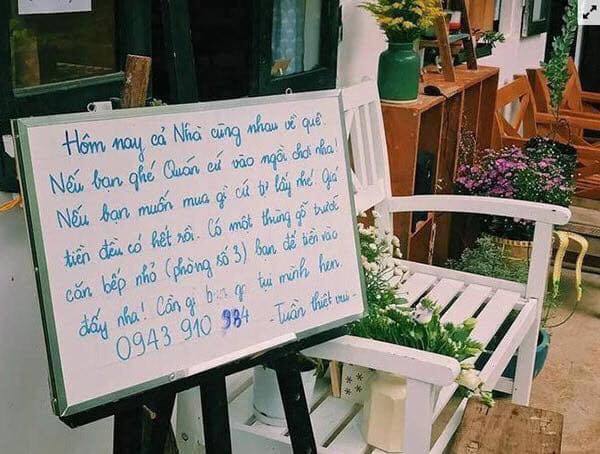 Hôm nay cả Nhà cùng nhau về quê.
Nếu bạn ghé Quán cứ vào ngồi chơi nha!
Nếu bạn muốn mua gì cứ tự lấy nhé Giá
tiền đều có hết rồi. Có một thùng gỗ trước
căn bếp nhỏ (phòng số 3) bạn để tiền vào
đấy nha! Cần gì tụi mình hen
0943 910 984 - Tuần thiệt vui -